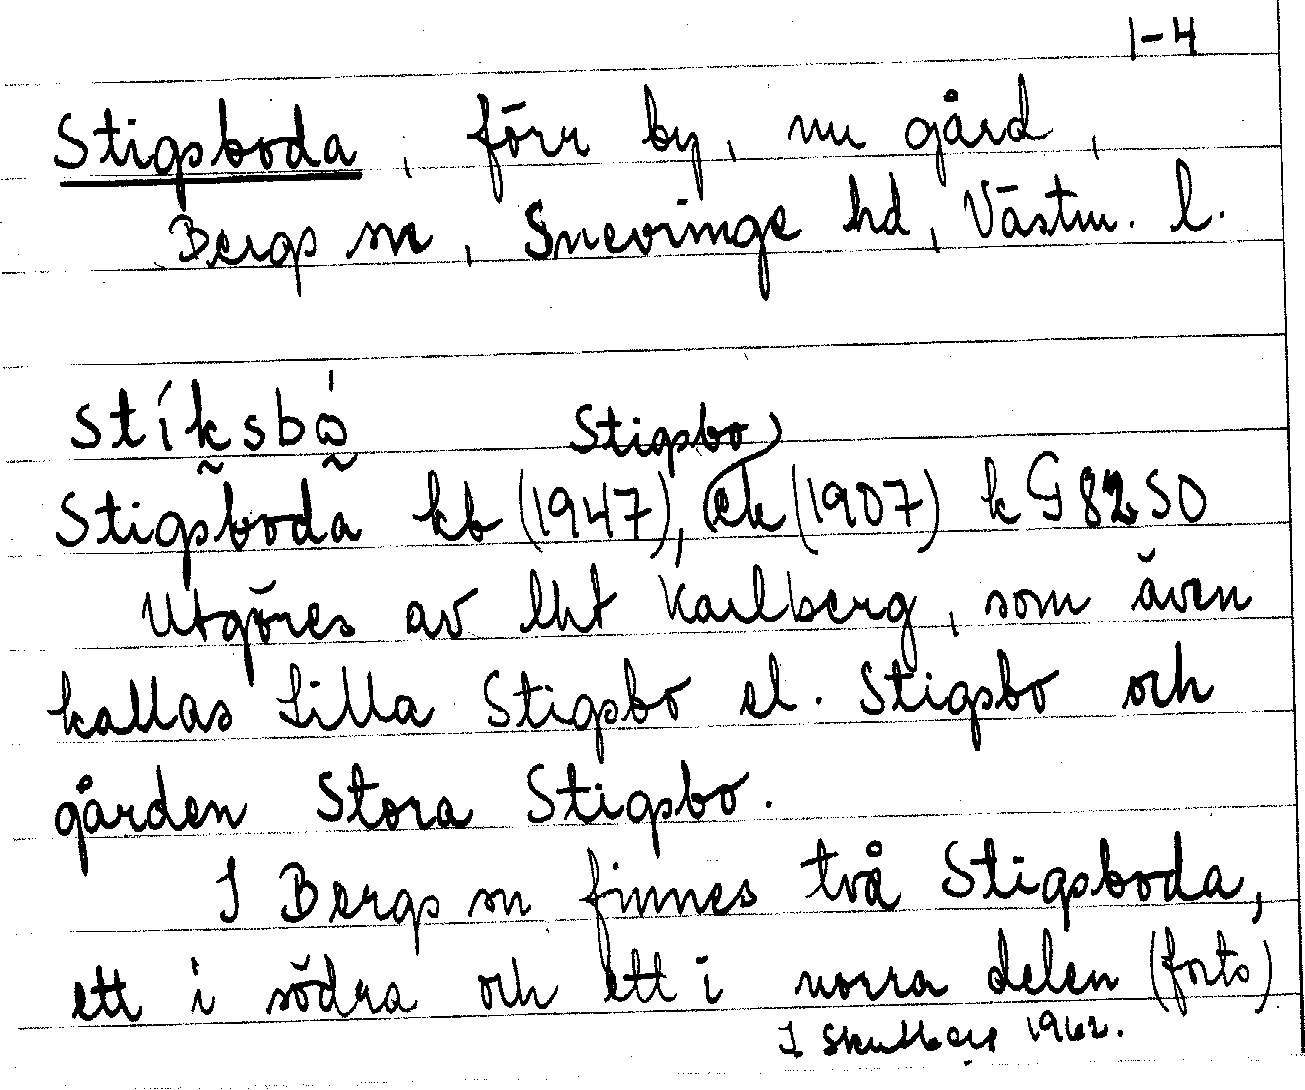 1-4
Stigsboda, förr by, nu gård,
Bergs sn, Snevringe hd, Västm. l.
stíksbo
Stigsbo
Stigsboda kb (1947), ek (1907) k G 8250
Utgöres av lht Karlberg, som även
kallas Lilla Stigsbo el. Stigsbo och
gården Stora Stigsbo.
I Bergs sn finnes två Stigsboda,
ett i södra och ett i norra delen (forts)
1962.